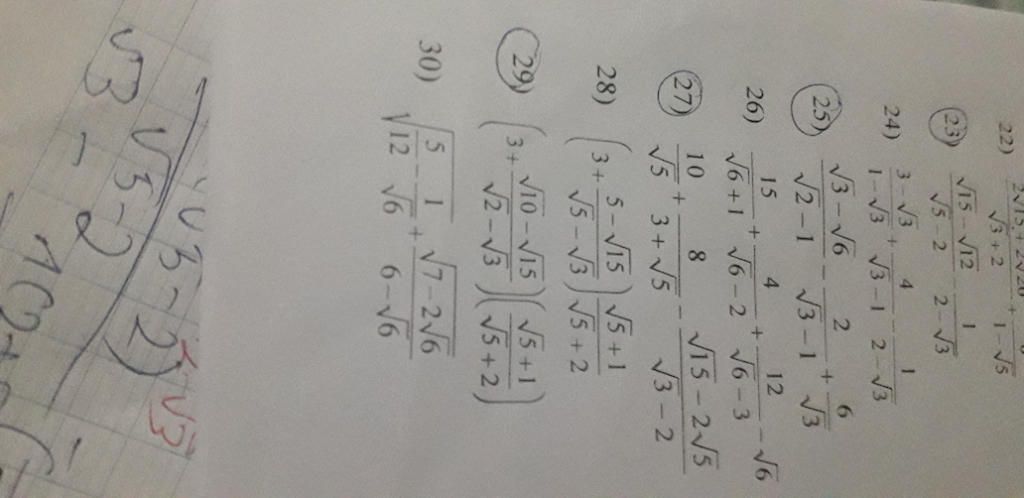 22) (2√15 + 2√20)/(√3 + 2) + /(1 − √5)
23) (√15 − √12)/(√5 − 2) − 1/(2 − √3)
24) (3 − √3)/(1 − √3) + 4/(√3 − 1) − 1/(2 − √3)
25) (√3 − √6)/(√2 − 1) − 2/(√3 − 1) + 6/√3
26) 15/(√6 + 1) + 4/(√6 − 2) + 12/(√6 − 3) − √6
27) 10/√5 + 8/(3 + √5) − (√15 − 2√5)/(√3 − 2)
28) (3 + (5 − √15)/(√5 − √3)) (√5 + 1)/(√5 + 2)
29) (3 + (√10 − √15)/(√2 − √3)) ((√5 + 1)/(√5 + 2))
30) √(5/12 − 1/√6) + √(7 − 2√6)/(6 − √6)
√5 − 2)
√5 − 2
√3 − 2